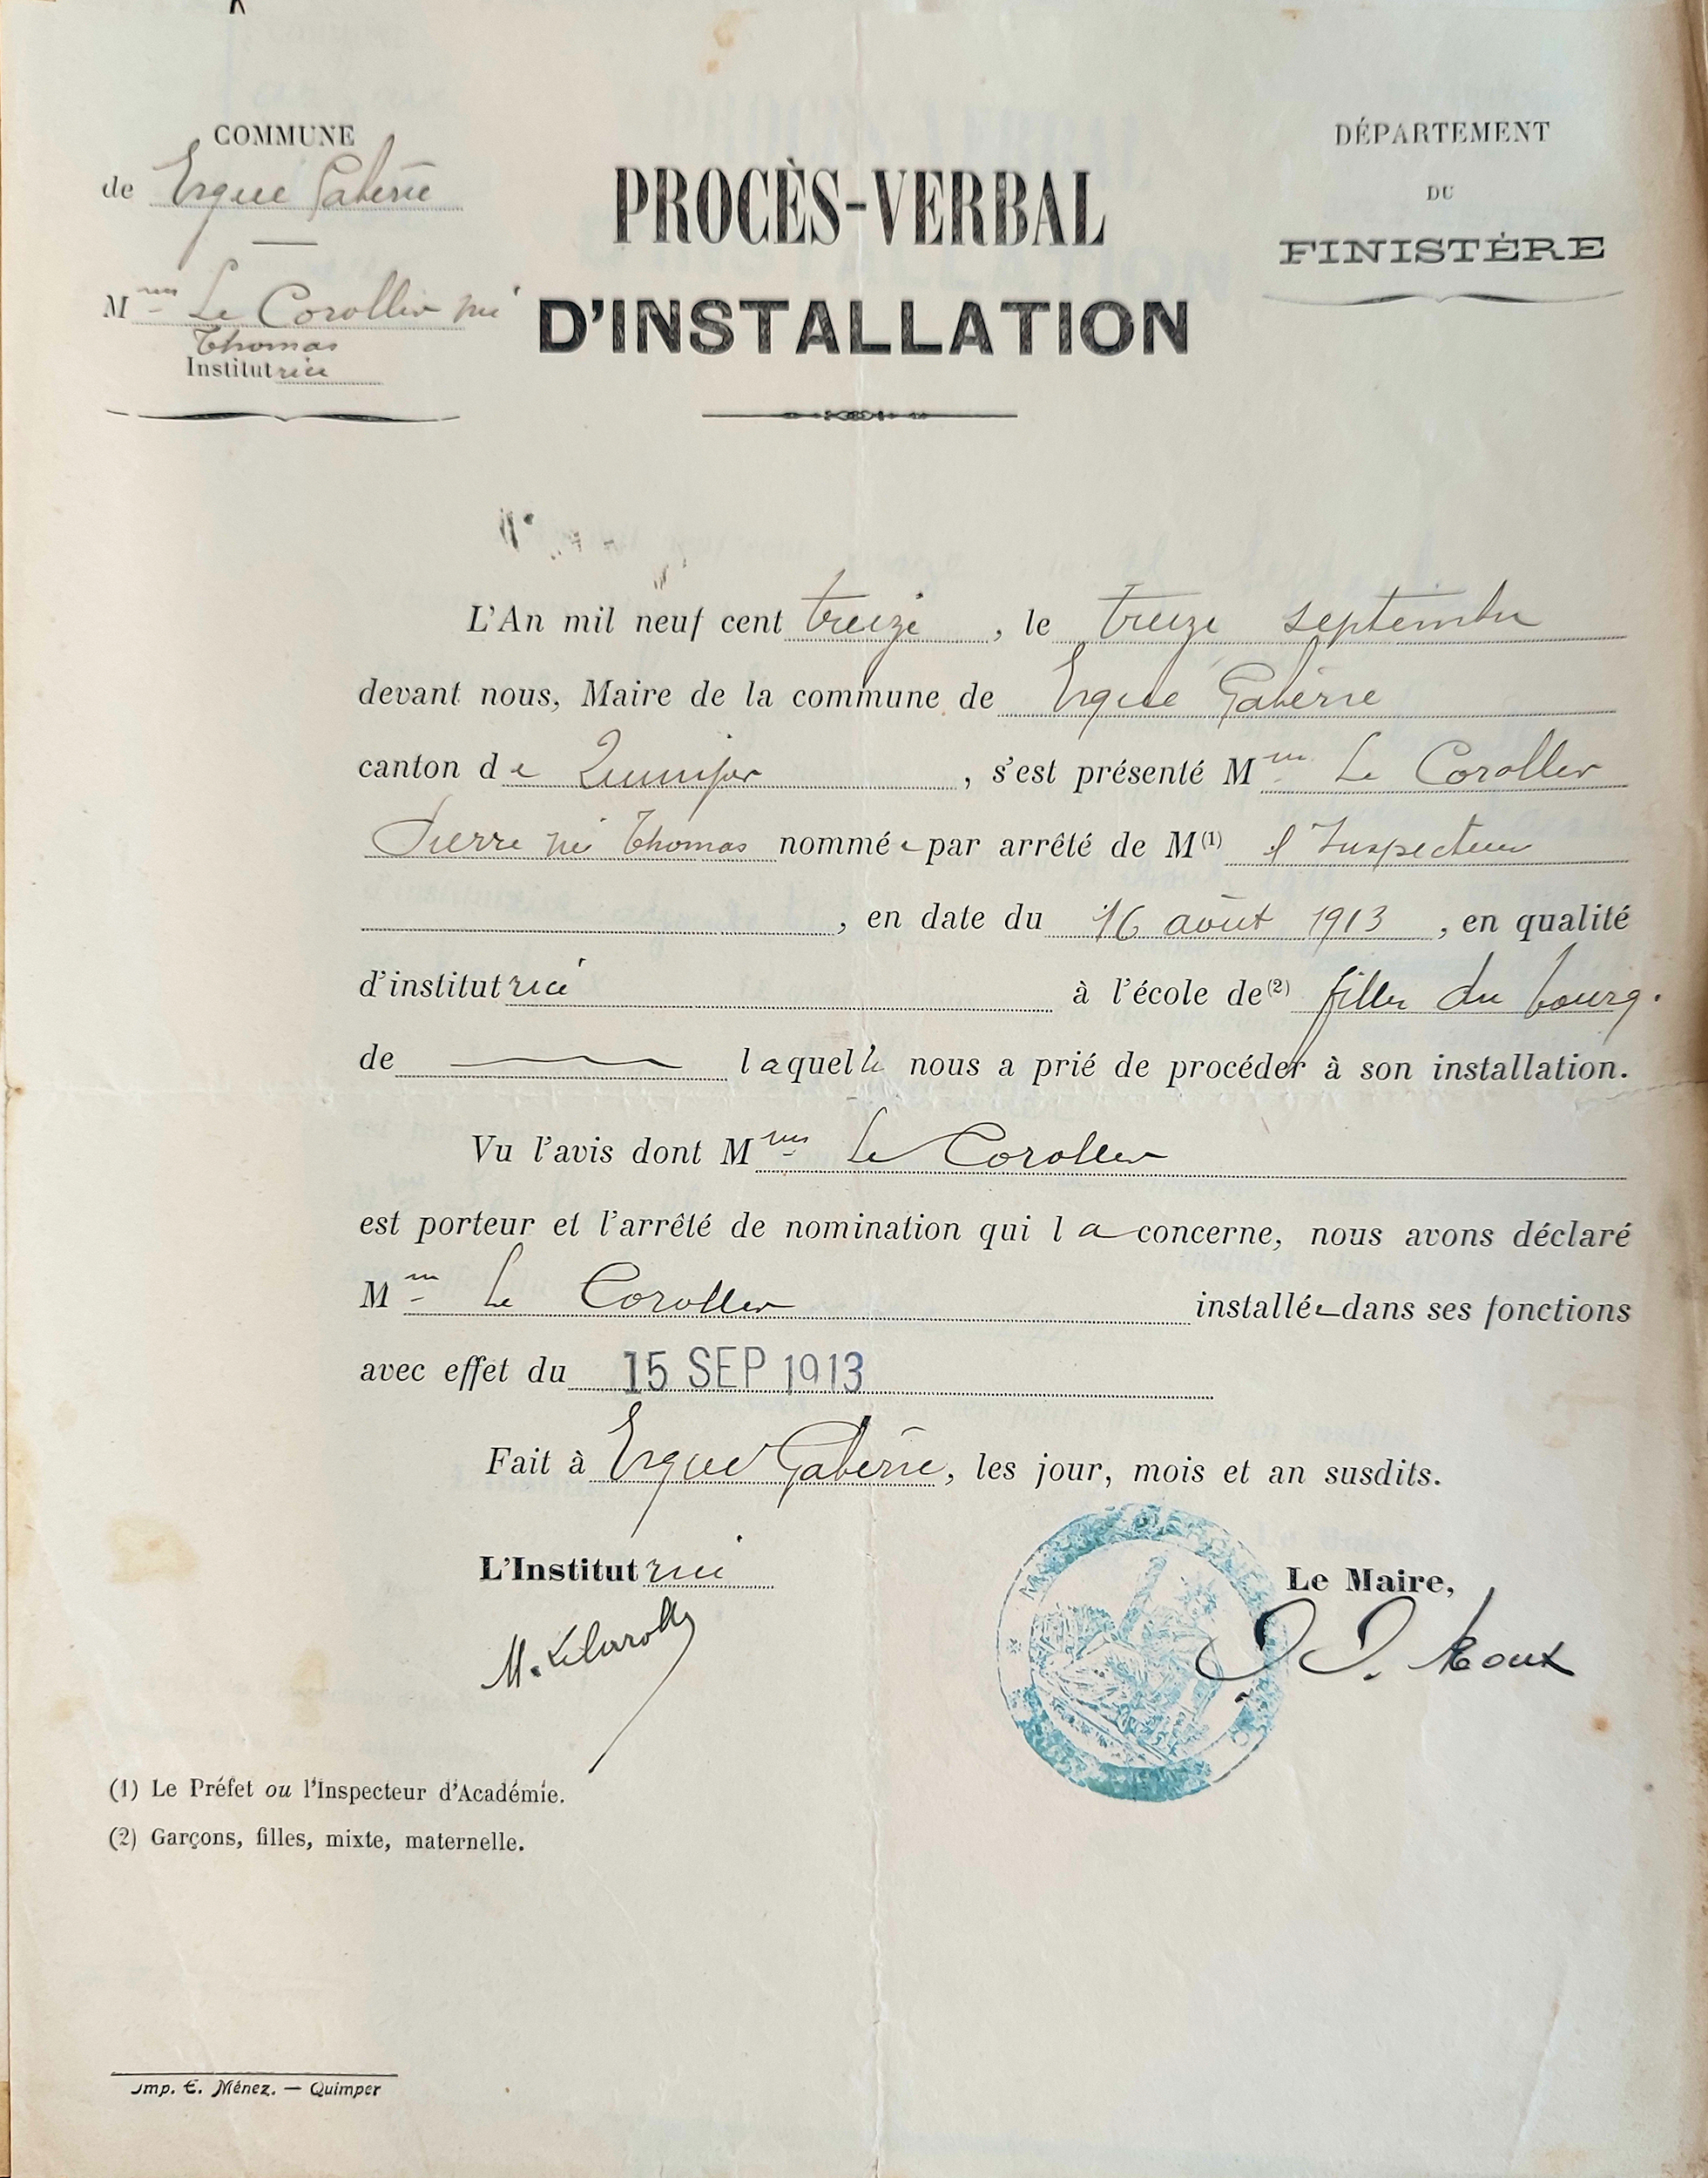 COMMUNE
de Ergué Gabéric
Mme Le Coroller née
Thomas
Institutrice
PROCÈS-VERBAL
D'INSTALLATION
DÉPARTEMENT
DU
FINISTÈRE
L'An mil neuf cent treize, le treize septembre
devant nous, Maire de la commune de Ergué Gabéric
canton de Quimper, s'est présenté Mme Le Coroller
Pierre née Thomas nommée par arrêté de M(1) l'Inspecteur
, en date du 16 août 1913, en qualité
d'institutrice à l'école de(2) filles du bourg.
de laquelle nous a prié de procéder à son installation.
Vu l'avis dont Mme Le Coroller
est porteur et l'arrêté de nomination qui la concerne, nous avons déclaré
Mme Le Coroller installée dans ses fonctions
avec effet du 15 SEP 1913
Fait à Ergué Gabéric, les jour, mois et an susdits.
L'Institutrice
Le Maire,
M. Le Coroller
Roux
(1) Le Préfet ou l'Inspecteur d'Académie.
(2) Garçons, filles, mixte, maternelle.
Imp. E. Ménez. — Quimper